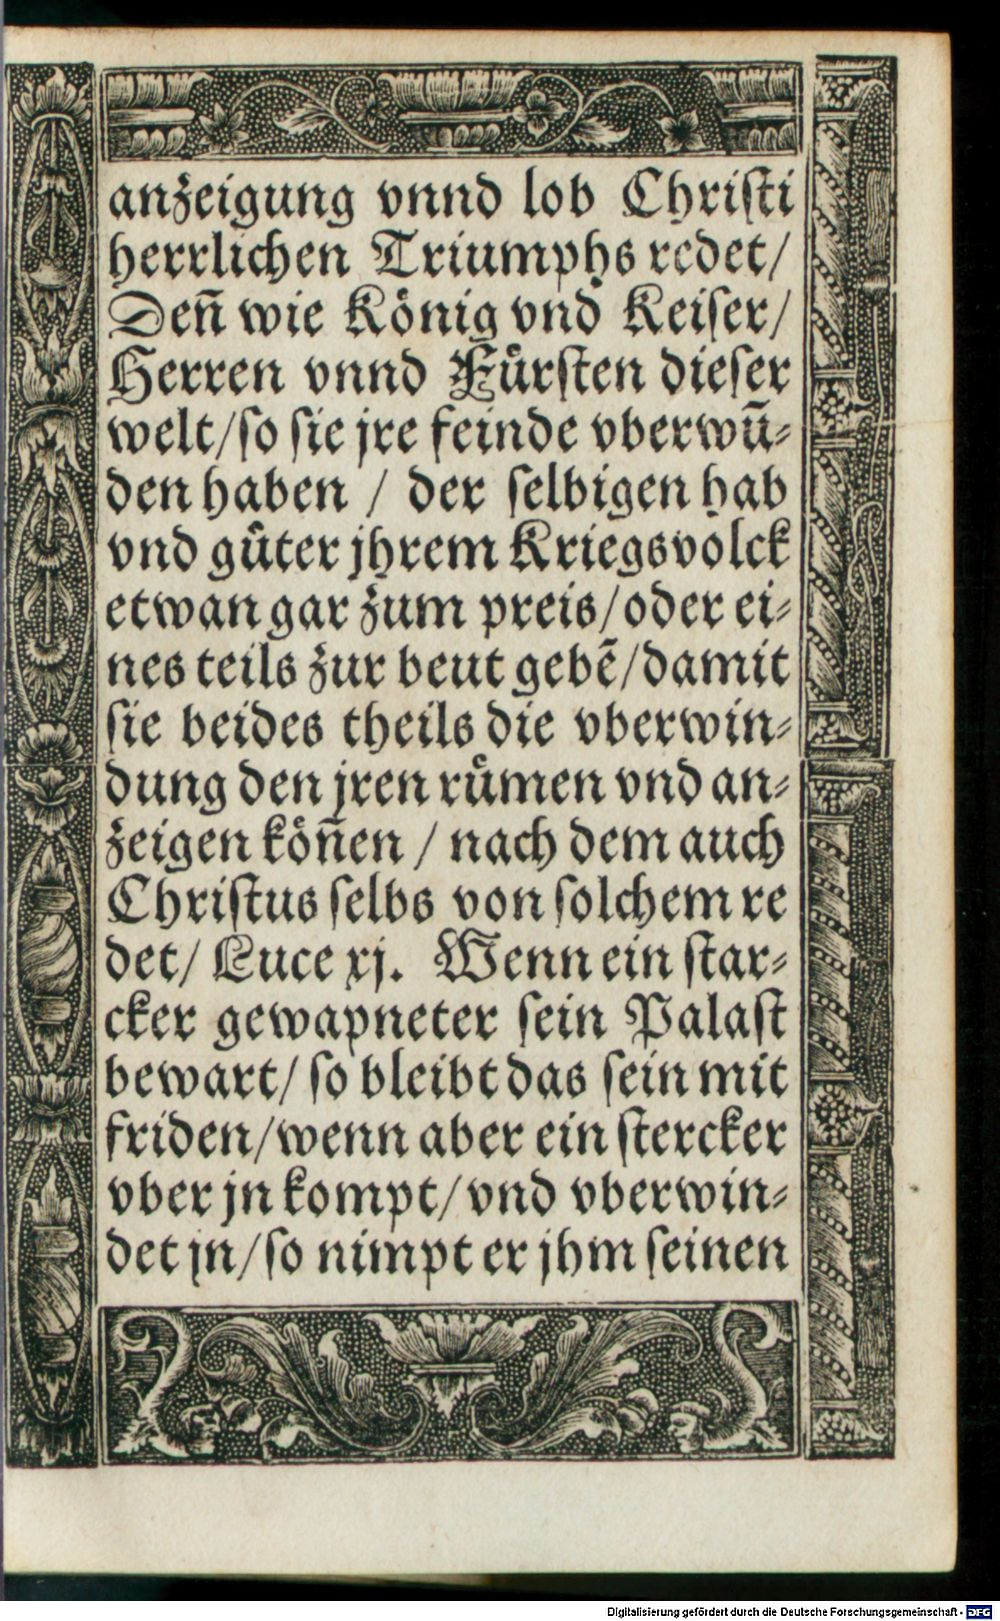 anzeigung vnnd lob Christi
herrlichen Triumphs redet/
Deñ wie König vnd Keiser/
Herren vnnd Fürsten dieser
welt/so sie jre feinde vberwū-
den haben / der selbigen hab
vnd güter jhrem Kriegsvolck
etwan gar zum preis/oder ei-
nes teils zur beut gebē/damit
sie beides theils die vberwin-
dung den jren rümen vnd an-
zeigen köñen / nach dem auch
Christus selbs von solchem re
det/ Luce xj. Wenn ein star-
cker gewapneter sein Palast
bewart/ so bleibt das sein mit
friden/wenn aber ein stercker
vber jn kompt/ vnd vberwin-
det jn/so nimpt er jhm seinen
Digitalisierung gefördert durch die Deutsche Forschungsgemeinschaft - DFG